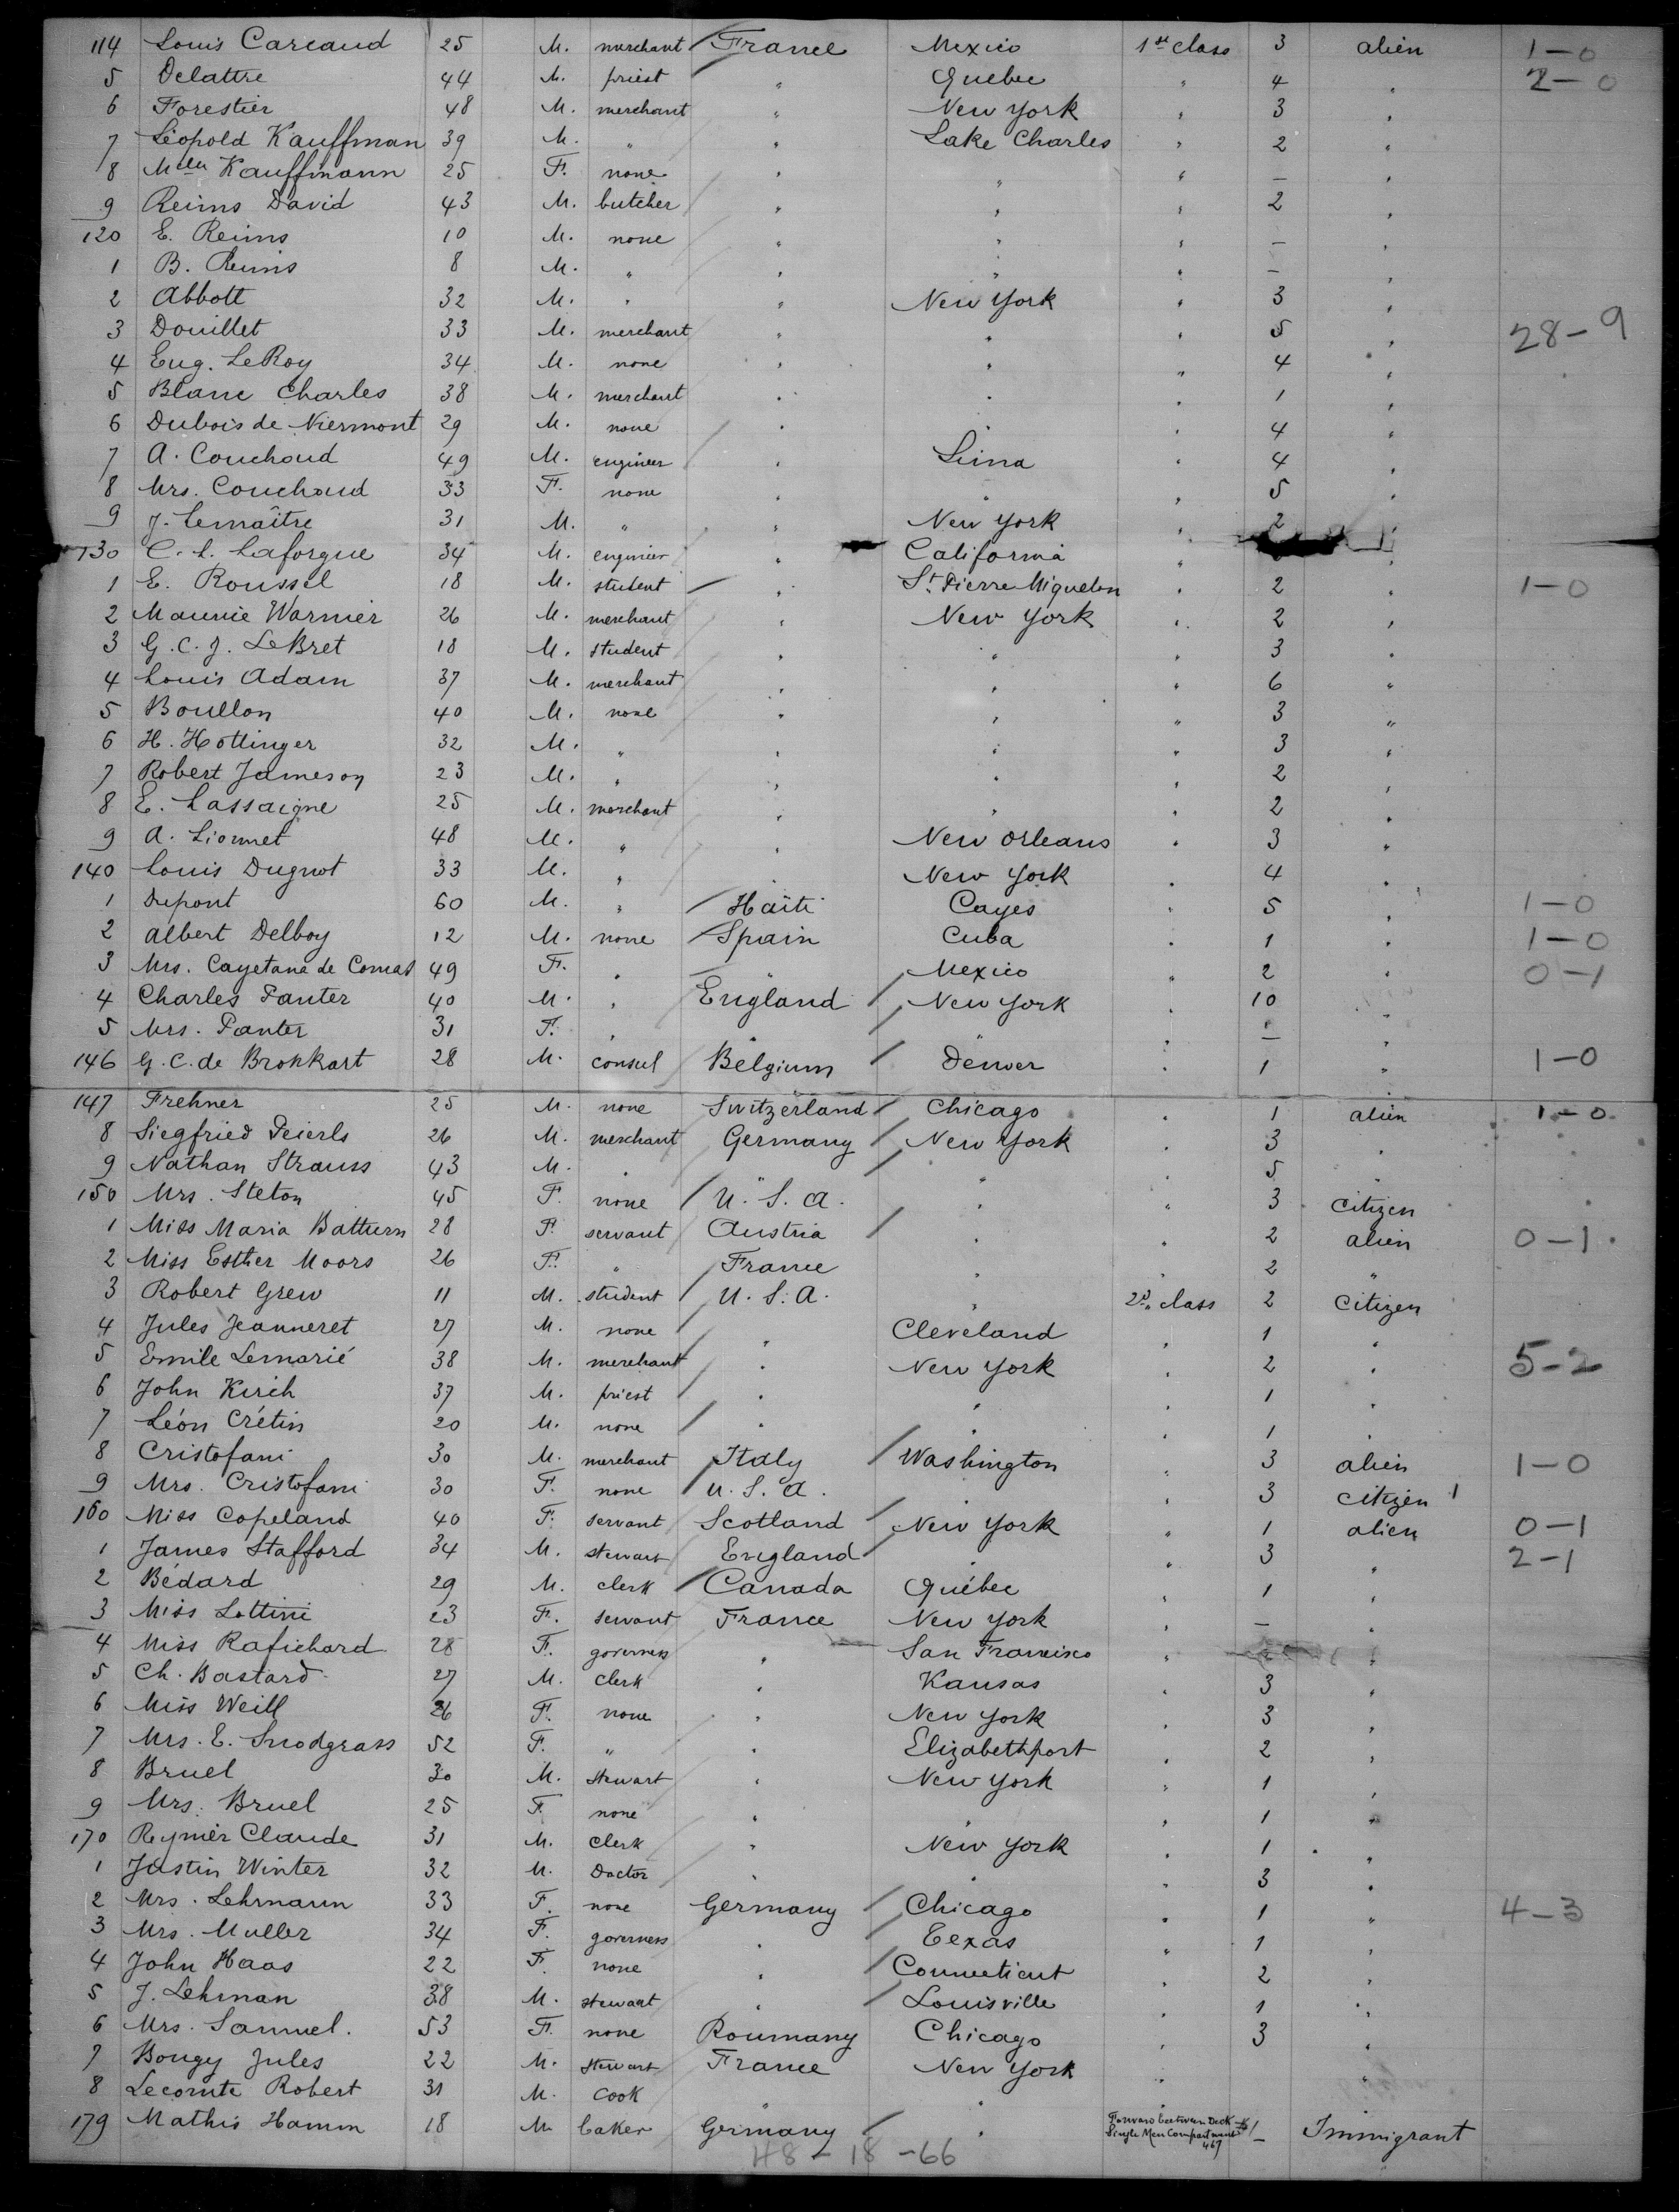 114 Louis Carcaud 25 M. merchant France Mexico 1st class 3 alien 1-0
5 Delattre 44 M. priest " Quebec " 4 " 2-0
6 Forestier 48 M. merchant " New York " 3 "
7 Léopold Kauffman 39 M. " " Lake Charles " 2 "
8 Kauffmann 25 F. none " " " — "
9 Reims David 43 M. butcher " " " 2 "
120 E. Reims 10 M. none " " " — "
1 B. Reims 8 M. " " " " — "
2 Abbott 32 M. " " New York " 3 "
3 Douillet 33 M. merchant " " " 5 " 28-9
4 Eug. LeRoy 34 M. none " " " 4 "
5 Blanc Charles 38 M. merchant " " " 1 "
6 Dubois de Niermont 29 M. none " " " 4 "
7 A. Couchoud 49 M. engineer " Lima " 4 "
8 Mrs. Couchoud 33 F. none " " " 5 "
9 J. Lemaître 31 M. " " New York " 2 "
130 C. L. Laforgue 34 M. engineer " California " "
1 E. Roussel 18 M. student " St. Pierre Miquelon " 2 " 1-0
2 Maurice Warnier 26 M. merchant " New York " 2 "
3 G. C. J. LeBret 18 M. student " " " 3 "
4 Louis Adam 37 M. merchant " " " 6 "
5 Boullon 40 M. none " " " 3 "
6 H. Hottinger 32 M. " " " " 3 "
7 Robert Jameson 23 M. " " " " 2 "
8 E. Lassaigne 25 M. merchant " " " 2 "
9 A. Lionnet 48 M. " " New Orleans " 3 "
140 Louis Dugnot 33 M. " " New York " 4 "
1 Dupont 60 M. " Haïti Cayes " 5 " 1-0
2 Albert Delboy 12 M. none Spain Cuba " 1 " 1-0
3 Mrs. Cayetana de Comas 49 F. " " Mexico " 2 " 0-1
4 Charles Panter 40 M. " England New York " 10 "
5 Mrs. Panter 31 F. " " " " — "
146 G. C. de Bronkart 28 M. consul Belgium Denver " 1 " 1-0
147 Frehner 25 M. none Switzerland Chicago " 1 alien 1-0
8 Siegfried Peierls 26 M. merchant Germany New York " 3 "
9 Nathan Strauss 43 M. " " " " 5 "
150 Mrs. Steton 45 F. none U. S. A. " " 3 citizen
1 Miss Maria 28 F. servant Austria " " 2 alien 0-1
2 Miss Esther Moors 26 F. " France " " 2 "
3 Robert Grew 11 M. student U. S. A. " 2d. class 2 citizen
4 Jules Jeanneret 27 M. none " Cleveland " 1 "
5 Emile Lemarié 38 M. merchant " New York " 2 " 5-2
6 John Kirch 37 M. priest " " " 1 "
7 Léon Crétin 20 M. none " " " 1 "
8 Cristofani 30 M. merchant Italy Washington " 3 alien 1-0
9 Mrs. Cristofani 30 F. none U. S. A. " " 3 citizen 1
160 Miss Copeland 40 F. servant Scotland New York " 1 alien 0-1
1 James Stafford 34 M. stewart England " " 3 " 2-1
2 Bédard 29 M. clerk Canada Québec " 1 "
3 Miss Lottini 23 F. servant France New York " — "
4 Miss Rafichard 28 F. governess " San Francisco " "
5 Ch. Bastard 27 M. clerk " Kansas " 3 "
6 Miss Weill 26 F. none " New York " 3 "
7 Mrs. E. Snodgrass 52 F. " " Elizabethport " 2 "
8 Bruel 30 M. stewart " New York " 1 "
9 Mrs. Bruel 25 F. none " " 1 "
170 Reynièr Claude 31 M. clerk " New York " 1 "
1 Justin Winter 32 M. Doctor " " " 3 "
2 Mrs. Lehmann 33 F. none Germany Chicago " 1 " 4-3
3 Mrs. Muller 34 F. governess " Texas " 1 "
4 John Haas 22 F. none " Connecticut " 2 "
5 J. Lehman 38 M. stewart " Louisville " 1 "
6 Mrs. Samuel. 53 F. none Roumany Chicago " 3 "
7 Bougy Jules 22 M. stewart France New York " "
8 Lecomte Robert 31 M. cook " " "
179 Mathis Hamm 18 M baker Germany " Forward between Deck Single Men Compartment 1 Immigrant
48-18-66